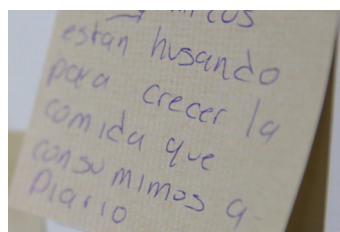 están husando
para crecer la
comida que
consumimos a
Diario